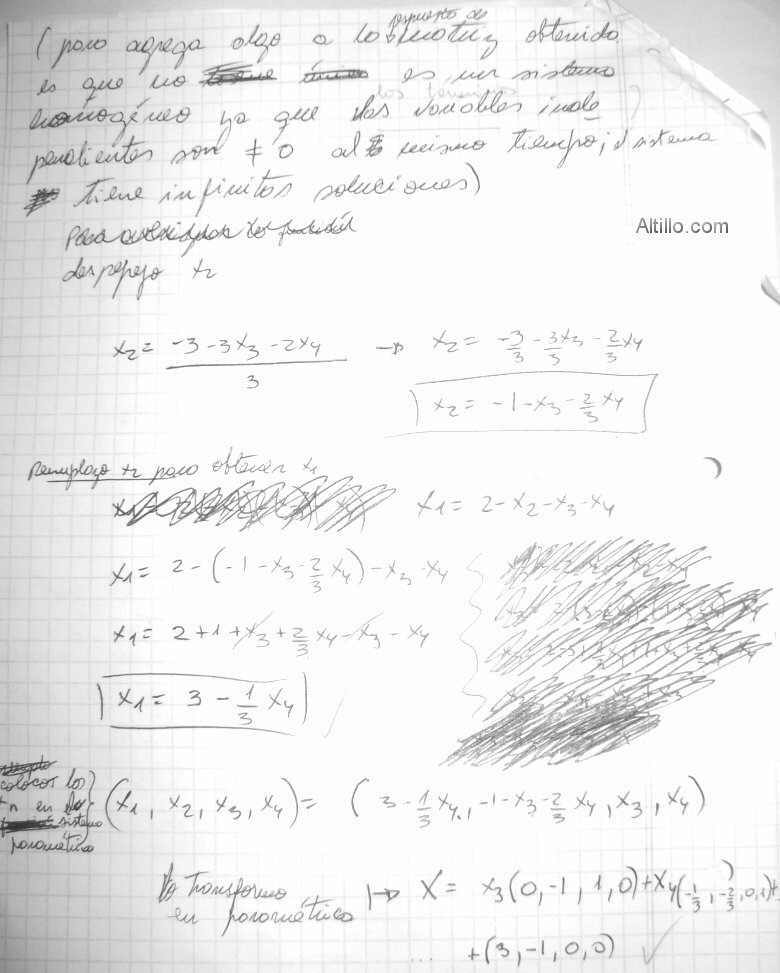 (para agrega algo a la respuesta de matriz obtenida
es que no es un sistema
homogéneo ya que los términos las variables inde
pendientes son ≠ 0 al mismo tiempo; el sistema
tiene infinitas soluciones)
Altillo.com
despejo x₂
x₂ = (-3 - 3x₃ - 2x₄)/3 → x₂ = -3/3 - 3x₃/3 - 2/3 x₄
x₂ = -1 - x₃ - 2/3 x₄
Remplazo x₂ para obtener x₁
x₁ = 2 - x₂ - x₃ - x₄
x₁ = 2 - (-1 - x₃ - 2/3 x₄) - x₃ - x₄
x₁ = 2 + 1 + x₃ + 2/3 x₄ - x₃ - x₄
x₁ = 3 - 1/3 x₄
colocar los
xn en
sistema
paramétrico
(x₁, x₂, x₃, x₄) = (3 - 1/3 x₄, -1 - x₃ - 2/3 x₄, x₃, x₄)
Transformo
en paramétrica
→ X = x₃(0, -1, 1, 0) + x₄(-1/3, -2/3, 0, 1) +
... + (3, -1, 0, 0)